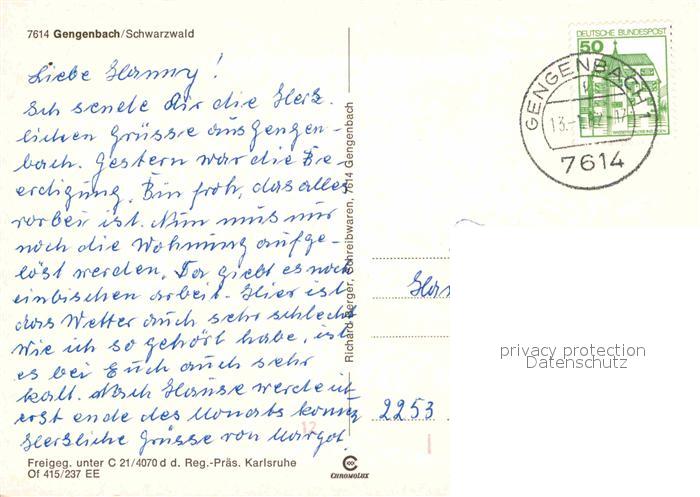 7614 Gengenbach/Schwarzwald
Liebe Hanny!
Ich sende Dir die Herz.
lichen Grüsse aus Gengen-
bach. Gestern war die Be-
erdigung. Bin froh, das alles
vorbei ist. Nun mus nur
noch die Wohnung aufge-
löst werden. Da giebt es noch
einbischen arbeit. Hier ist
das Wetter auch sehr schlecht
Wie ich so gehört habe, ist
es bei Euch auch sehr
kalt. Nach Hause werde ich
erst ende des Monats kommen
Herzliche Grüsse von Margot.
Freigeg. unter C 21/4070 d d. Reg.-Präs. Karlsruhe
Of 415/237 EE
Richard Berger, Schreibwaren, 7614 Gengenbach
CHROMOLUX
DEUTSCHE BUNDESPOST
50
GENGENBACH 1
7614
Han
privacy protection
Datenschutz
2253
12